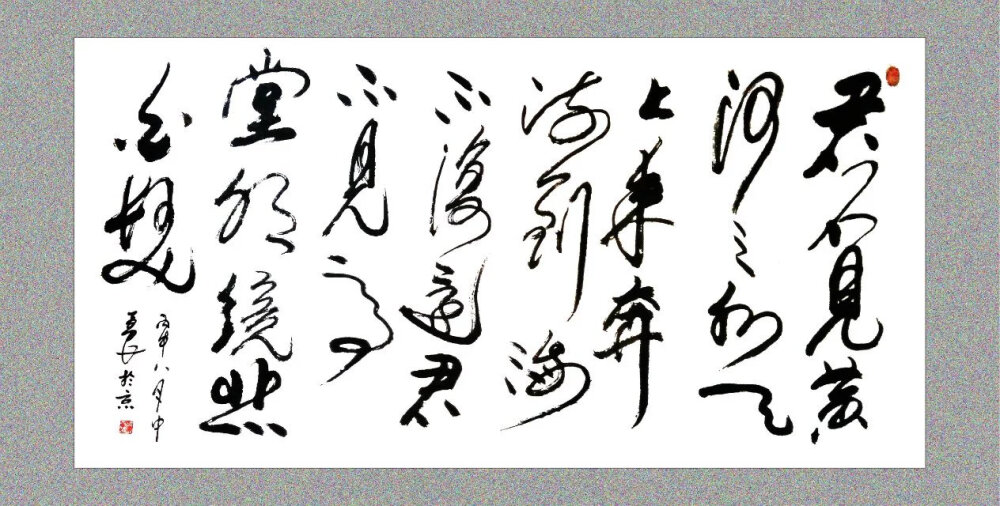 君不見黄
河之水天
上来奔
流到海
不復還君
不見高
堂明鏡悲
白髮
丙申八月中
於京